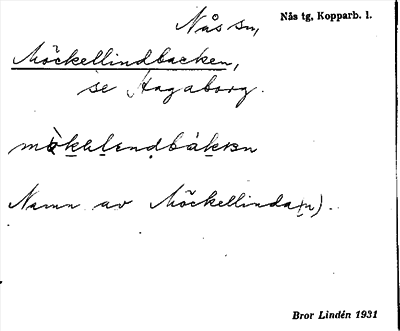 Nås sn,
Nås tg, Kopparb. l.
Möckellindbacken,
se Hagaborg.
Namn av Möckellinda(n).
Bror Lindén 1931